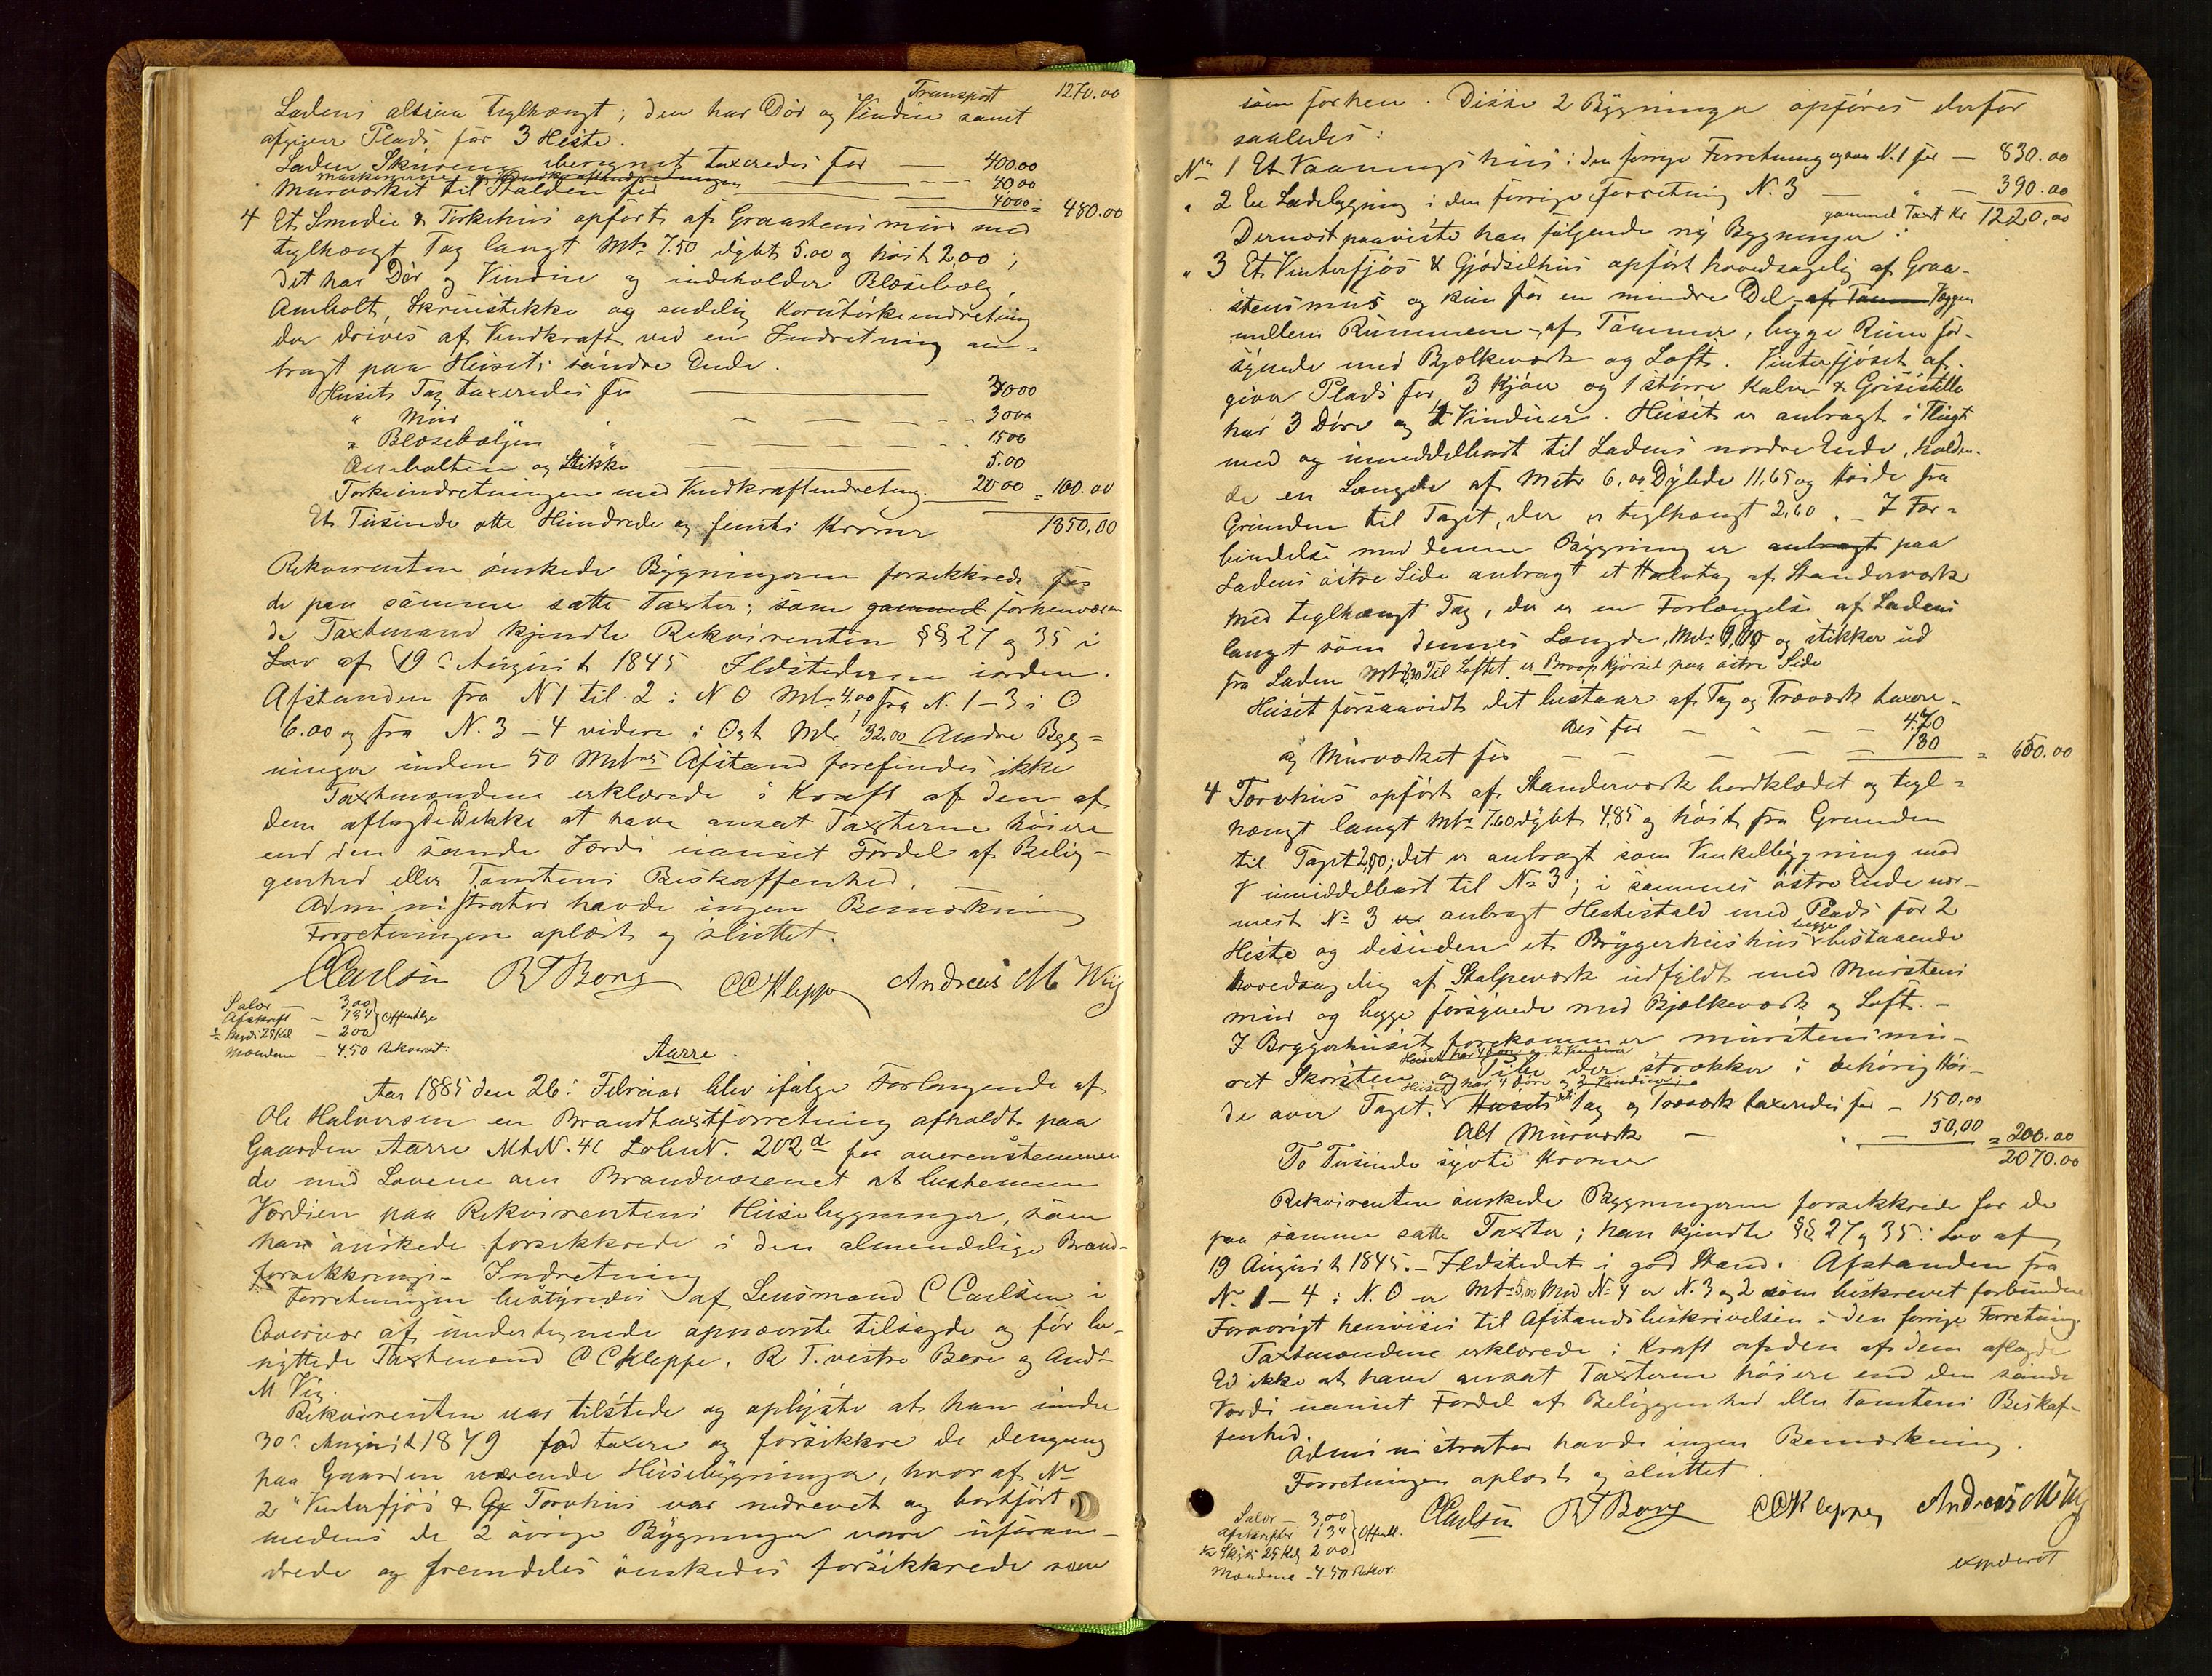 Transport 1270.00
Ladens altsaa teglhængt; den har Dør og Vindue samt
afgiver Plads for 3 Heste.
Laden Skurene iberegnet taxeredes for — 400.00
Maskinerne
Murværket til Stalden for — 40.00
40.00 = 480.00
4 Et Smedie & Tørkehus opført af Graastensmur med
teglhængt Tag langt Mtr 7.50 dybt 5.00 og høit 2.00;
det har Dør og Vindue og indeholder Blæsebælg,
Ambolt, Skruestikke og endelig Korntørkeindretning
der drives af Vindkraft ved en Indretning an-
bragt paa Husets søndre Ende.
Husets Tag taxeredes for — 30.00
" Mur — 30.00
" Blæsebælgen " — 15.00
Ambolten og Stikke — 5.00
Tørkeindretningen med Vindkraftindretning. 20.00 = 100.00
Et Tusinde otte Hundrede og femti Kroner 1850,00
Rekvirenten ønskede Bygningerne forsikkrede for
de paa samme satte Taxter; som gammel forhenværen
de Taxtmand kjendte Rekvirenten §§ 27 og 35 i
Lov af 19de August 1845 Ildstederne iorden.
Afstanden fra N 1 til 2 i N O Mtr 4,00 fra N. 1-3 i O
6.00 og fra N. 3-4 videre i Ost Mtr 32.00 Andre Byg-
ninger inden 50 Metres Afstand forefindes ikke
Taxtmændene erklærede i Kraft af den af
dem aflagde Ed ikke at have ansat Taxterne høiere
end den sande Værdi uanset Fordel af Belig-
genhed eller Tomtens Beskaffenhed.
Administrator havde ingen Bemærkning
Forretningen oplæst og sluttet.
CCarlsen RTBore CCKleppe Andreas M Wiig
Salær — 3,00
Afskrift — 134 } Offentlige
½ Skyds 25 Kil — 200
Mændene — 4.50 Rekvirent:
Aarre.
Aar 1885 den 26: Februar blev ifølge Forlangende af
Ole Halvorsen en Brandtaxtforretning afholdt paa
Gaarden Aarre MtN. 41 LøbeN. 202d for overenstemmen
de med Lovene om Brandvæsenet at bestemme
Værdien paa Rekvirentens Husebygninger, som
han ønskede forsikkrede i den almendelige Brand-
forsikkrings-Indretning
Forretningen bestyredes af Lensmand C Carlsen i
Overvær af undertegnede opnævnte tilsagde og før be-
nyttede Taxtmænd C C Kleppe, R T. vestre Bore og Ands
M Vig.
Rekvirenten var tilstede og oplyste at han under
30: August 1879 fod taxere og forsikkre de dengang
paa Gaarden værende Husebygninger, hvoraf No
2 "Vinterfjøs & Gj Torvhus var nedrevet og bortført
medens de 2 øvrige Bygninger vare uforan-
drede og fremdeles ønskedes forsikkrede som
som forhen. Disse 2 Bygninger opføres derfor
saaledes:
No 1 Et Vaaningshus i den forrige Forretning ogsaa N. 1 for — 830.00
" 2 En Ladebygning i den forrige Forretning N. 3 — " — 390.00
gammel Taxt Kr 1220,00
Dernæst paaviste han følgende ny Bygninger:
" 3 Et Vinterfjøs & Gjødselhus opført hovedsagelig af Graa-
stensmur og kun for en mindre Del af Tømmer Væggen
mellem Rummene af Tømmer, begge Rum for-
synede med Bjælkeværk og Loft. Vinterfjøset af-
giver Plads for 3 Kjør og 1 større Kalve & Grisestelle
har 3 Døre og 2 Vinduer. Huset er anbragt i Flugt
med og umiddelbart til Ladens nordre Ende, holden-
de en Længde af Metr 6,00 Dybde 11.65 og Høide fra
Grunden til Taget, der er teglhængt 2.60. — I For-
bindelse med denne Bygning er anbragt paa
Ladens østre Side anbragt et Halvtag af Standerværk
med teglhængt Tag, der er en Forlængelse af Ladens
langt som dennes Længde Mtr 9,00 og stikker ud
fra Laden Mtr 2,30 Til Loftet er Broopkjørsel paa østre Side
Huset forsaavidt det bestaar af Tag og Træværk taxere-
des for — 470
og Murværket for — 180 = 650.00
4 Torvhus opført af Standerværk bordklædet og tegl-
hængt langt Mtr 7.60 dybt 4.85 og høit fra Grunden
til Taget 2,00; det er anbragt som Vinkelbygning mod
V umiddelbart til No 3; i sammes østre Ende nær-
mest No 3 er anbragt Hestestald med Plads for 2
Heste og desuden et Bryggerhushus begge bestaaende
hovedsagelig af Stolpeværk udfyldt med Murstens
mur og begge forsynede med Bjælkeværk og Loft. —
I Bryggerhuset forekommer murstensmu-
ret Skorsten og Pibe der strækker i behørig Høi-
Huset har 4 Døre og 2 Vinduer
de over Taget. Husets Tag og Træværk taxeredes for — 150,00
Alt Murværk — 50,00 = 200.00
To Tusinde syvti Kroner 2070.00
Rekvirenten ønskede Bygningerne forsikkrede for de
paa samme satte Taxter; han kjendte §§ 27 og 35 i Lov af
19 August 1845. — Ildstedet i god Stand. Afstanden fra
No 1-4 i N. O er Mtr 5,00 Med No 4 er N. 3 og 2 som beskrevet forbundne
Forøvrigt henvises til Afstandsbeskrivelsen i den forrige Forretning.
Taxtmændene erklærede i Kraft af den af dem aflagde
Ed ikke at have ansat Taxterne høiere end den sande
Værdi uanset Fordel af Beliggenhed eller Tomtens Beskaf-
fenhed.
Administrator havde ingen Bemærkning.
Forretningen oplæst og sluttet.
CCarlsen RTBore CCKleppe Andreas M Wiig
Salær — 3,00
Afskrifter 134 } Offentl.
½ Skyds 25 Kil 200
Mændene — 4.50 Rekvir:
expederet